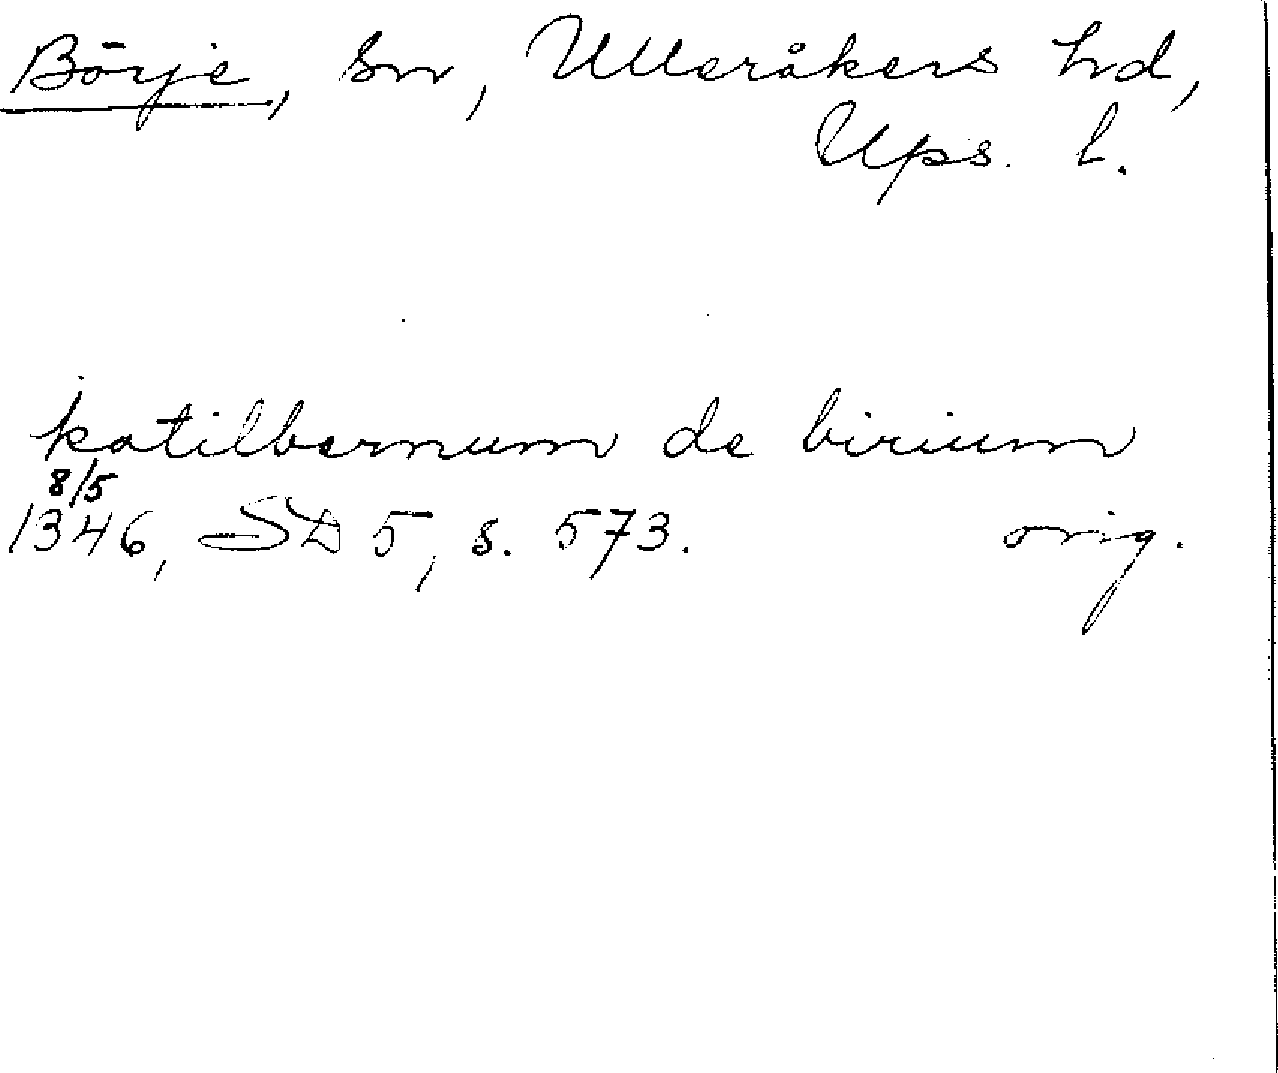 Börje, sn, Ulleråkers hd,
Ups. l.
katilbernum de birium
8/5
1346, SD 5, s. 573. orig.